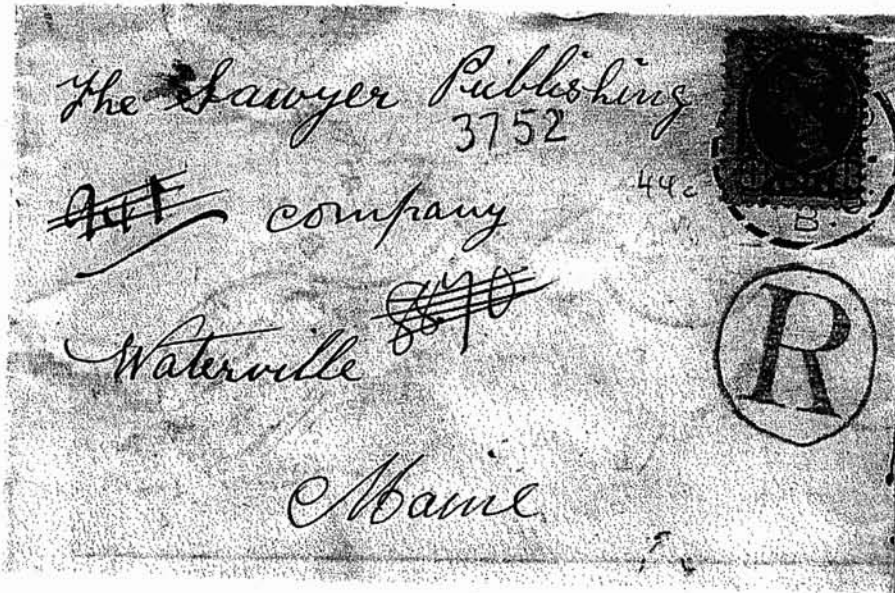 The Sawyer Publishing
3752
44c
company
B.C.
8870
Waterville
R
Maine